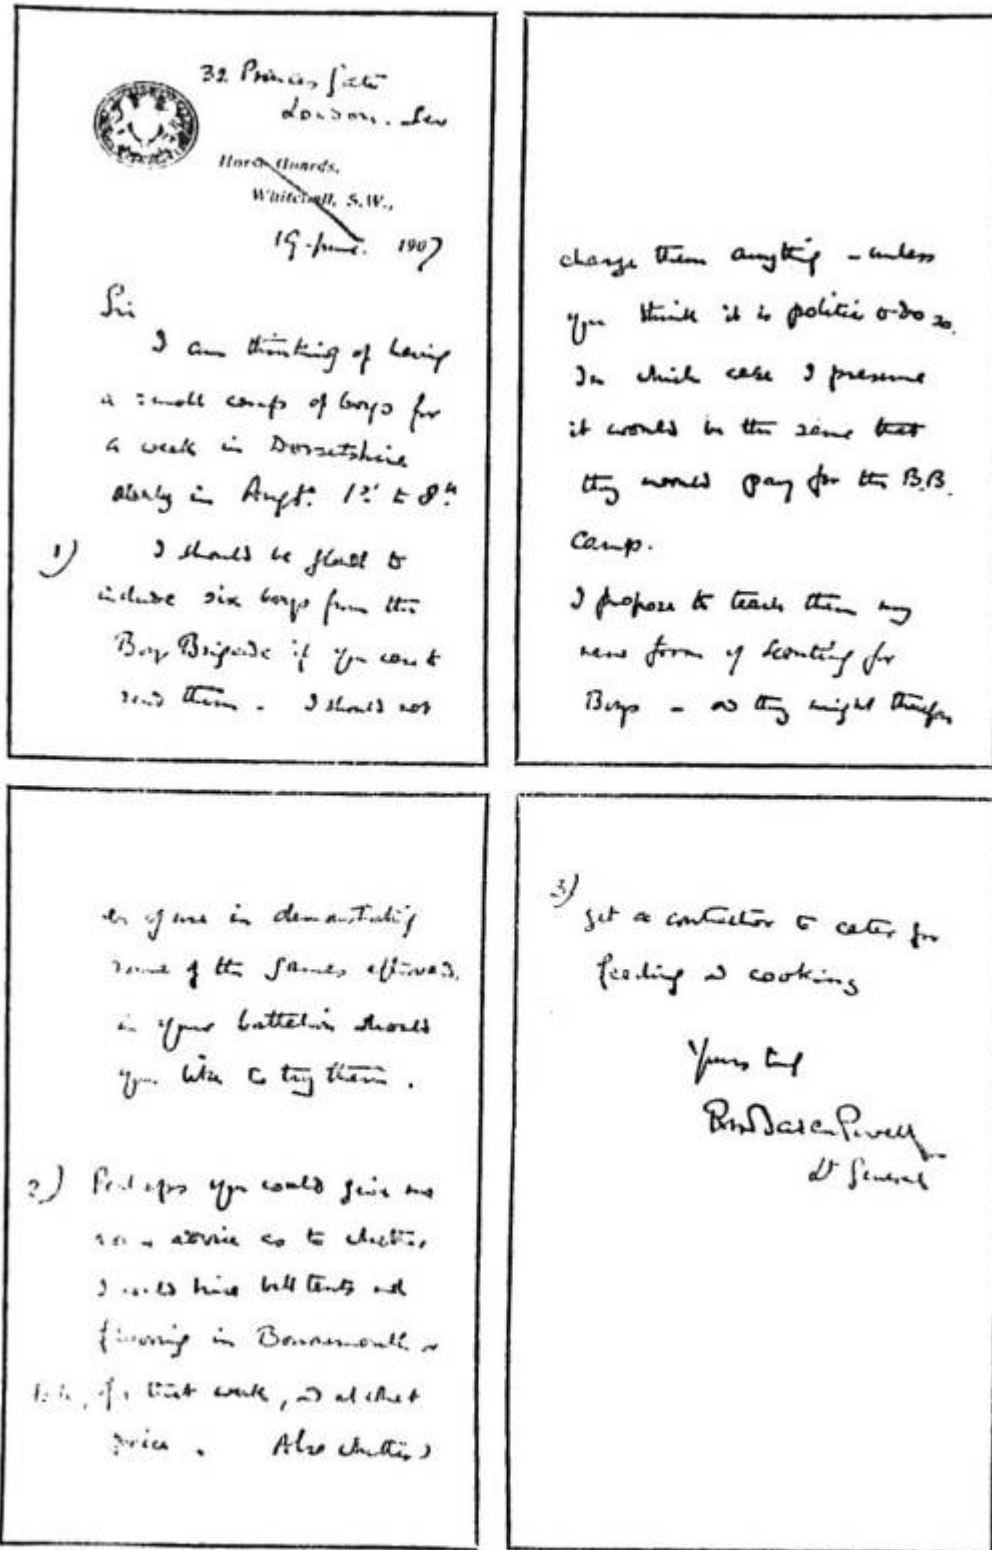 32 Princes Gate
London. SW
Horse Guards,
Whitehall, S.W.,
19 June. 1907
Sir
I am thinking of having
a small camp of boys for
a week in Dorsetshire
early in Augst. 1st to 8th
1) I should be glad to
include six boys from the
Boys Brigade if you care to
send them. I should not
charge them anything - unless
you think it is politic to do so.
In which case I presume
it would be the same that
they would pay for the B.B.
Camp.
I propose to teach them my
new form of Scouting for
Boys - & they might therefore
be of use in demonstrating
some of the games afterwards
in your battalion should
you like to try them.
2) Perhaps you could give me
some advice as to whether
I could hire bell tents and
flooring in Bournemouth or
Poole, for that week, & at what
price. Also whether I
3) get a contractor to cater for
feeding & cooking
Yours truly
RSS Baden Powell
Lt General